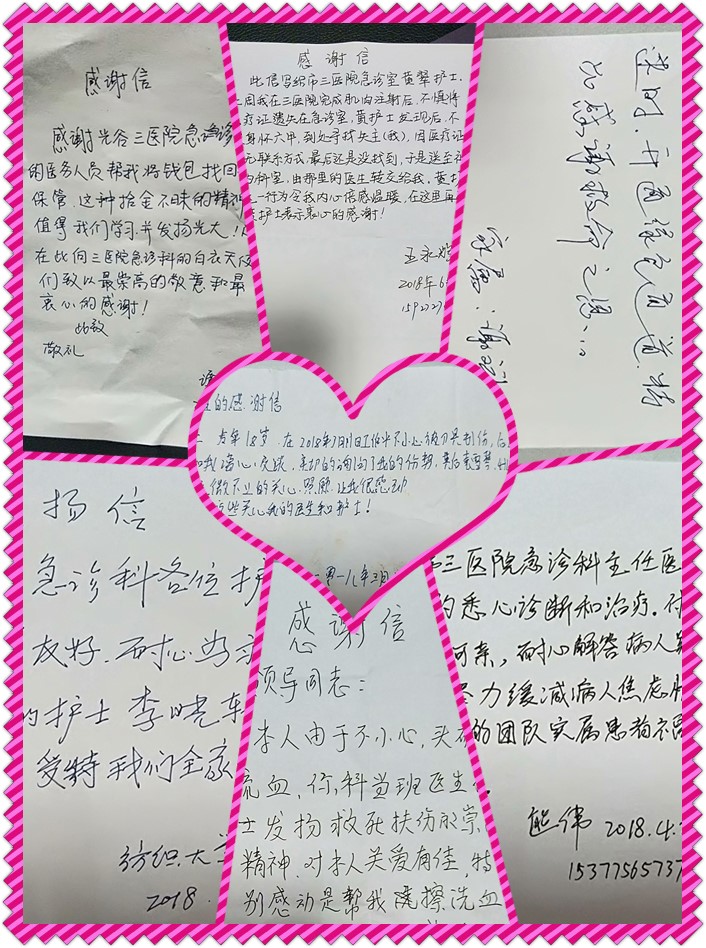 感谢信
感谢光谷三医院急诊
的医务人员帮我将钱包找回
保管,这种拾金不昧的精神
值得我们学习并发扬光大!
在此向三医院急诊科的白衣天使
们致以最崇高的敬意和最
衷心的感谢!
此致
敬礼
感谢信
此信写给市三医院急诊室黄翠护士,
周我在三医院完成肌肉注射后,不慎将
疗证遗失在急诊室,黄护士发现后,不
身怀六甲,到处寻找失主(我),因医疗证
无联系方式,最后还是没找到,于是送至
科室,由那里的医生转交给我,黄护
一行为令我内心倍感温暖,在这里再
护士表示衷心的感谢!
王永
2018年6
15927
速时,开通绿色通道,特
此感谢救命之恩!
家属:谢
的感谢信
去年18岁,在2018年3月1日工作中不小心被刀具划伤,后
和我谈心交谈,亲切的询问了我的伤势,
微不至的关心,照顾,让我很感动
些关心我的医生和护士!
一八年三月
扬信
急诊科各位护
友好,耐心为
的护士李晓东
爱特我们全家
纺织大学
2018
感谢信
领导同志:
本人由于不小心,头部
流血,你科当班医生
士发扬救死扶伤的崇
精神,对本人关爱有佳,特
别感动是帮我擦洗血
三医院急诊科主任医
的悉心诊断和治疗。
可亲,,耐心解答病人
尽力缓减病人焦虑
的团队实属患者
熊伟 2018.4.
15377565737